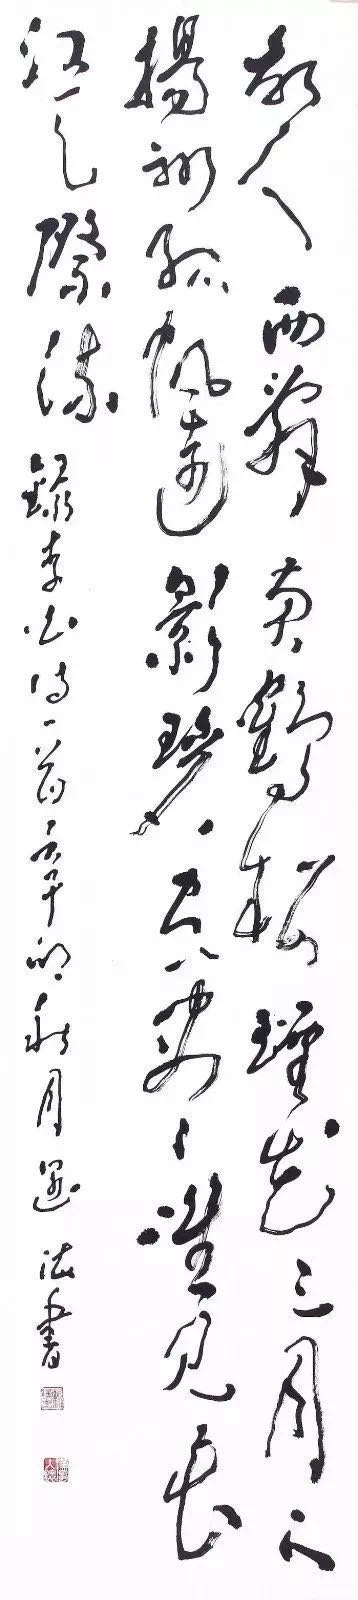 故人西辭黃鶴樓煙花三月下
揚州孤帆遠影碧空盡唯見長
江天際流 錄李白詩一首 秋月 書